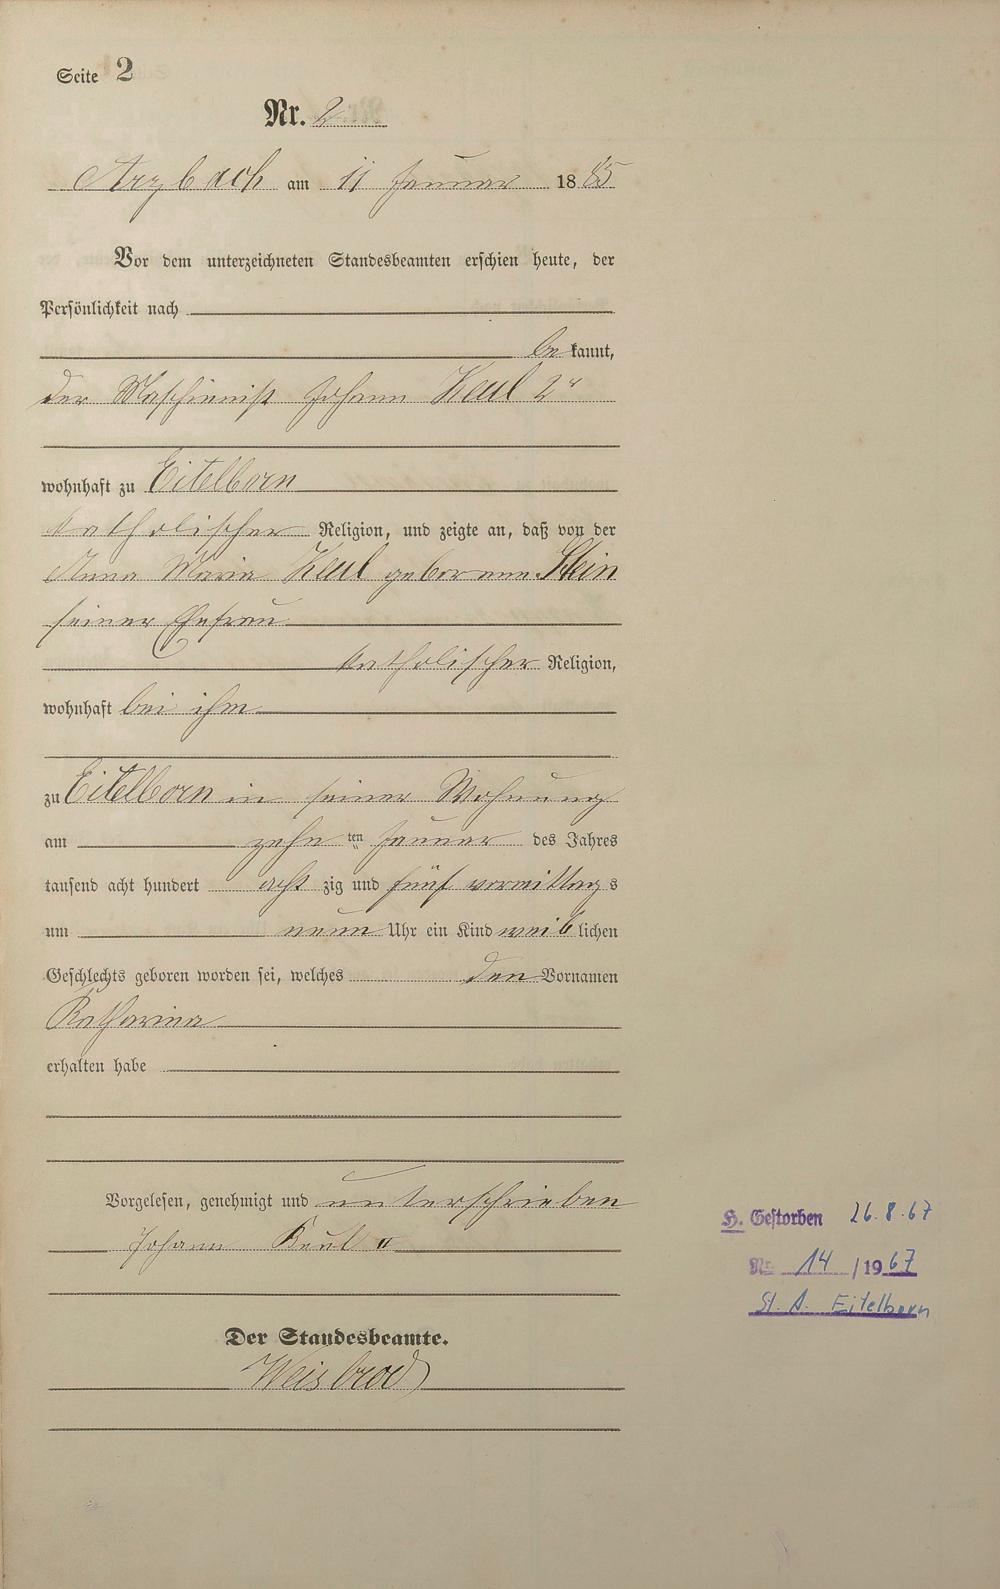 Seite 2
Nr. 2
Arzbach am 11 Januar 1885
Vor dem unterzeichneten Standesbeamten erschien heute, der
Persönlichkeit nach
bekannt,
der Maschienist Johann Keul 2r
wohnhaft zu Eitelborn
katholischer Religion, und zeigte an, daß von der
Anna Maria Keul geborenne Stein
seiner Ehefrau
katholischer Religion,
wohnhaft bei ihm
zu Eitelborn in seiner Wohnung
am zehnten Januar des Jahres
tausend acht hundert achtzig und fünf vormittags
um neun Uhr ein Kind weiblichen
Geschlechts geboren worden sei, welches den Vornamen
Katharina
erhalten habe
Vorgelesen, genehmigt und unterschrieben
Johann Keul II
Der Standesbeamte.
Weisbrod
H. Gestorben 26.8.67
Nr. 14 / 1967
St. A. Eitelborn